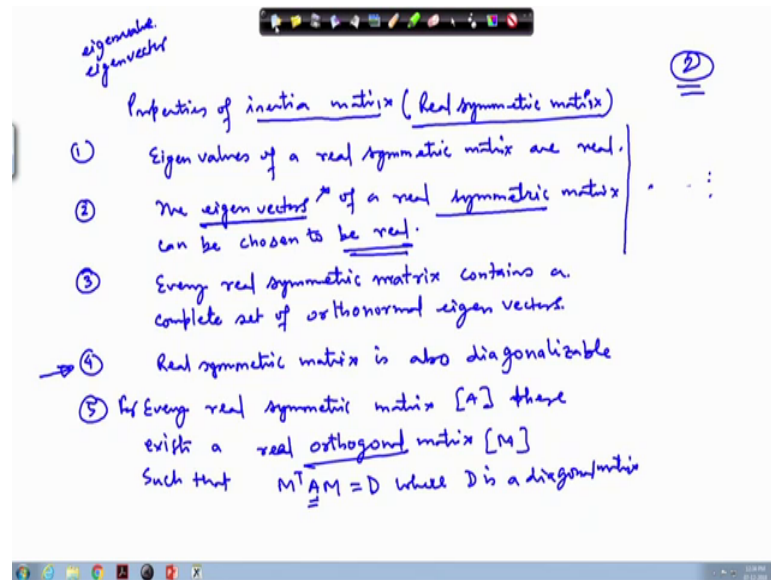 eigenvalue.
eigenvectors
2
Properties of inertia matrix (Real symmetric matrix)
① Eigen values of a real symmetric matrix are real.
② The eigen vectors of a real symmetric matrix
can be chosen to be real.
③ Every real symmetric matrix contains a
complete set of orthonormal eigen vectors.
④ Real symmetric matrix is also diagonalizable
⑤ For Every real symmetric matrix [A] there
exists a real orthogonal matrix [M]
Such that MᵀAM = D where D is a diagonal matrix